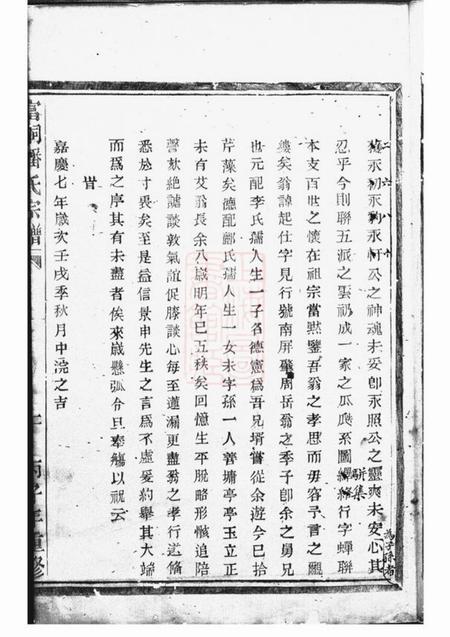 二 六 八 十
梅永初永和永軒公之神魂未妥卽永照公之靈爽未安心其
忍乎今則聯五派之雲礽成一家之瓜瓞系圖繩繩行字蟬聯
騈集
本支百世之懷在祖宗當默鑒吾翁之孝思而毋容予言之覼
縷矣翁諱起仕字見行號南屏肇周岳翁之季子卽余之舅兄
也元配李氏孺人生一子名德憲爲吾兄壻嘗從余遊今已拾
芹藻矣德配鄺氏孺人生一女未字孫一人善墉亭亭玉立正
未有艾翁長余八歲明年巳五秩矣回憶生平脫略形骸追陪
謦欬絕謔談敦氣誼促膝談心每至蓮漏更盡翁之孝行逑脩
悉於寸畏矣至是益信景申先生之言爲不虛爰約舉其大端
而爲之序其有未盡者俟來歲懸弧令旦奉觴以祝云
旹
嘉慶七年歲次壬戌季秋月中浣之吉
富桐潘氏宗譜
重修